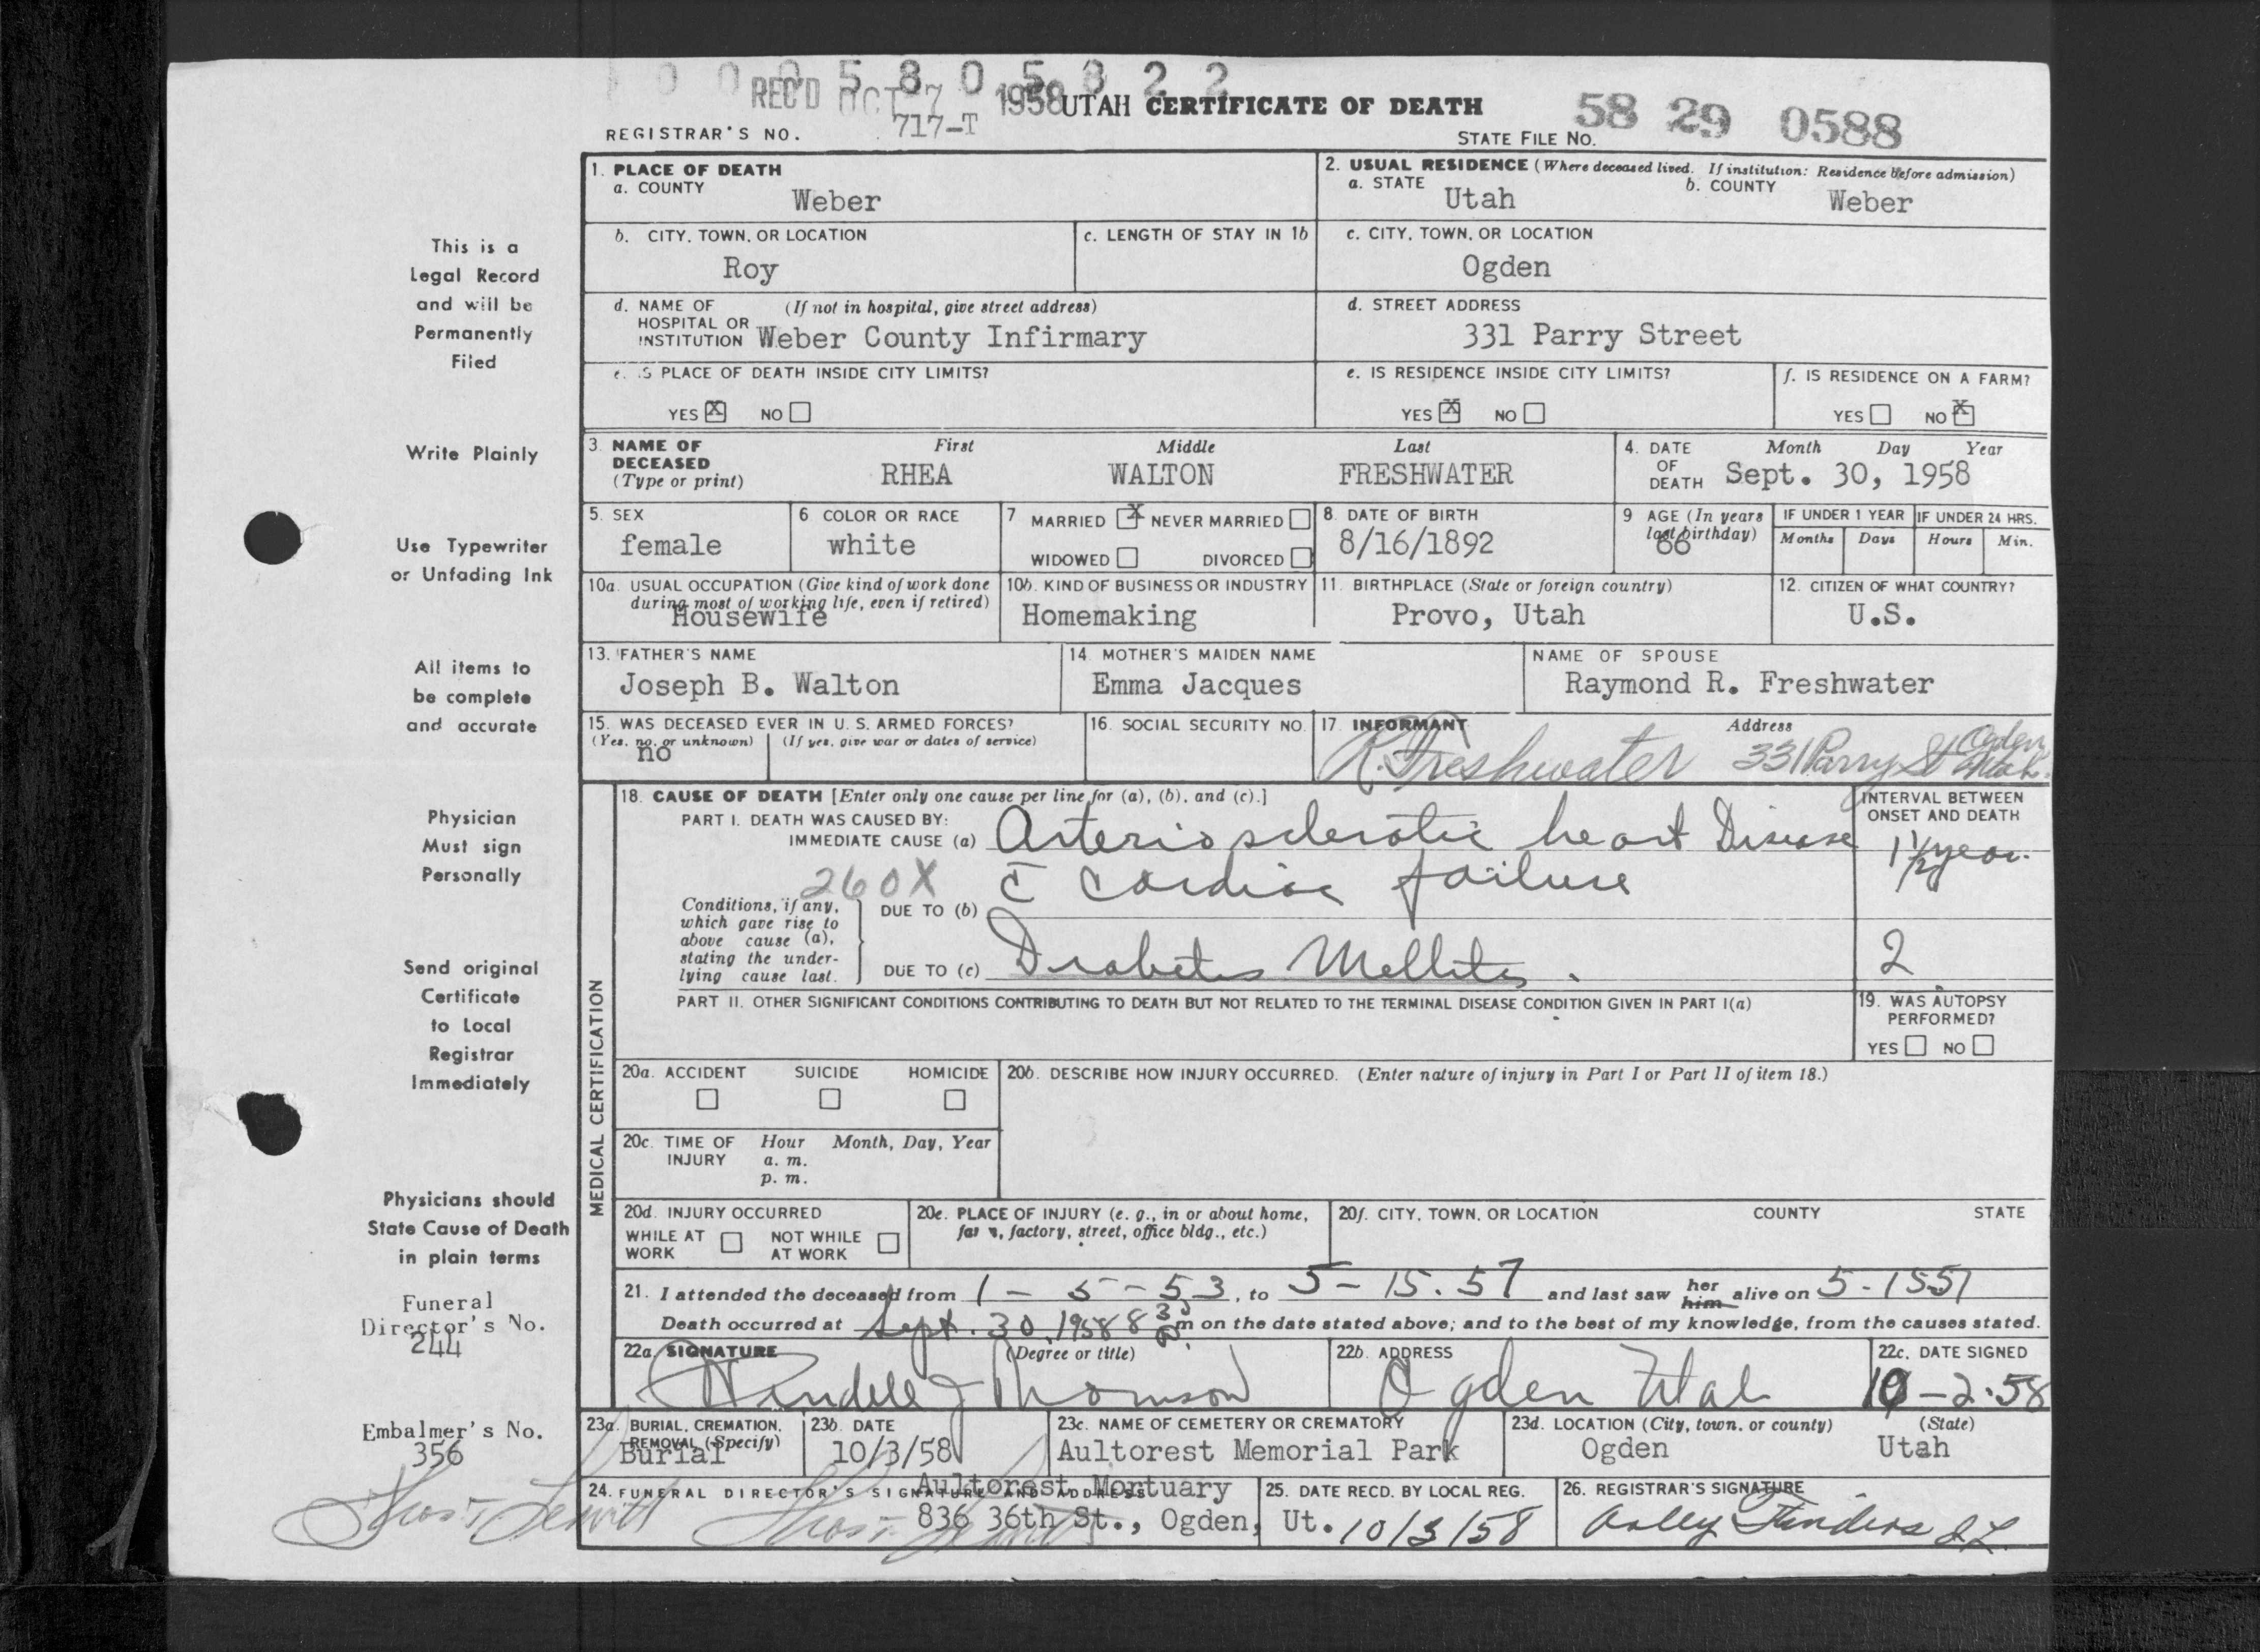 0 0 0 5 8 0 5 8 2 2
REC'D OCT 7 1958 UTAH CERTIFICATE OF DEATH
REGISTRAR'S NO. 717-T STATE FILE NO. 58 29 0588
This is a
Legal Record
and will be
Permanently
Filed
Write Plainly
Use Typewriter
or Unfading Ink
All items to
be complete
and accurate
Physician
Must sign
Personally
Send original
Certificate
to Local
Registrar
Immediately
Physicians should
State Cause of Death
in plain terms
Funeral
Director's No.
244
Embalmer's No.
356
1. PLACE OF DEATH
a. COUNTY Weber
2. USUAL RESIDENCE (Where deceased lived. If institution: Residence before admission)
a. STATE Utah b. COUNTY Weber
b. CITY, TOWN, OR LOCATION Roy
c. LENGTH OF STAY IN 1b
c. CITY, TOWN, OR LOCATION Ogden
d. NAME OF (If not in hospital, give street address)
HOSPITAL OR
INSTITUTION Weber County Infirmary
d. STREET ADDRESS
331 Parry Street
e. IS PLACE OF DEATH INSIDE CITY LIMITS?
YES X NO
e. IS RESIDENCE INSIDE CITY LIMITS?
YES X NO
f. IS RESIDENCE ON A FARM?
YES NO X
3. NAME OF DECEASED (Type or print)
First Middle Last
RHEA WALTON FRESHWATER
4. DATE OF DEATH Month Day Year
Sept. 30, 1958
5. SEX
female
6 COLOR OR RACE
white
7 MARRIED X NEVER MARRIED
WIDOWED DIVORCED
8. DATE OF BIRTH
8/16/1892
9 AGE (In years last birthday)
66
IF UNDER 1 YEAR IF UNDER 24 HRS.
Months Days Hours Min.
10a. USUAL OCCUPATION (Give kind of work done
during most of working life, even if retired)
Housewife
10b. KIND OF BUSINESS OR INDUSTRY
Homemaking
11. BIRTHPLACE (State or foreign country)
Provo, Utah
12. CITIZEN OF WHAT COUNTRY?
U.S.
13. FATHER'S NAME
Joseph B. Walton
14. MOTHER'S MAIDEN NAME
Emma Jacques
NAME OF SPOUSE
Raymond R. Freshwater
15. WAS DECEASED EVER IN U. S. ARMED FORCES?
(Yes, no, or unknown) (If yes, give war or dates of service)
no
16. SOCIAL SECURITY NO.
17. INFORMANT Address
R. Freshwater 331 Parry St Ogden Utah.
MEDICAL CERTIFICATION
18. CAUSE OF DEATH [Enter only one cause per line for (a), (b), and (c).]
PART I. DEATH WAS CAUSED BY:
IMMEDIATE CAUSE (a) Arteriosclerotic heart Disease
c̄ Cardiac failure
260X
INTERVAL BETWEEN
ONSET AND DEATH
1 1/2 year.
Conditions, if any,
which gave rise to
above cause (a),
stating the under-
lying cause last.
DUE TO (b)
DUE TO (c) Diabetes Mellitus.
2
PART II. OTHER SIGNIFICANT CONDITIONS CONTRIBUTING TO DEATH BUT NOT RELATED TO THE TERMINAL DISEASE CONDITION GIVEN IN PART I(a)
19. WAS AUTOPSY
PERFORMED?
YES NO
20a. ACCIDENT SUICIDE HOMICIDE
20b. DESCRIBE HOW INJURY OCCURRED. (Enter nature of injury in Part I or Part II of item 18.)
20c. TIME OF INJURY Hour Month, Day, Year
a. m.
p. m.
20d. INJURY OCCURRED
WHILE AT WORK NOT WHILE AT WORK
20e. PLACE OF INJURY (e. g., in or about home,
farm, factory, street, office bldg., etc.)
20f. CITY, TOWN, OR LOCATION COUNTY STATE
21. I attended the deceased from 1-5-53, to 5-15.57 and last saw her him alive on 5-1557
Death occurred at Sept. 30, 1958 8 30 P. m on the date stated above; and to the best of my knowledge, from the causes stated.
22a. SIGNATURE (Degree or title)
Wendell J Thomson
22b. ADDRESS
Ogden Utah
22c. DATE SIGNED
10-2-58
23a. BURIAL, CREMATION,
REMOVAL (Specify)
Burial
23b. DATE
10/3/58
23c. NAME OF CEMETERY OR CREMATORY
Aultorest Memorial Park
23d. LOCATION (City, town, or county) (State)
Ogden Utah
24. FUNERAL DIRECTOR'S SIGNATURE AND ADDRESS
Aultorest Mortuary
836 36th St., Ogden, Ut.
25. DATE RECD. BY LOCAL REG.
10/3/58
26. REGISTRAR'S SIGNATURE